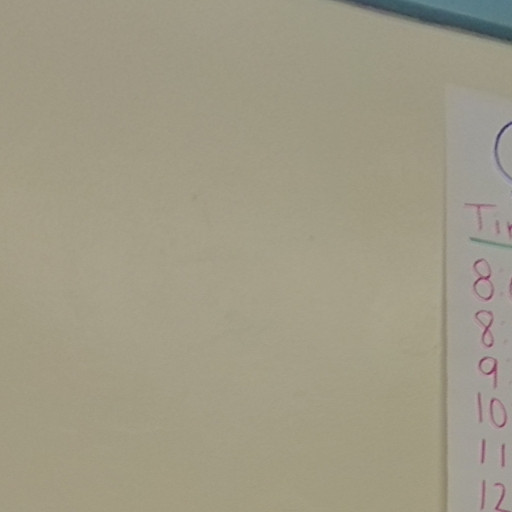 8:
8:
9
10
11
12